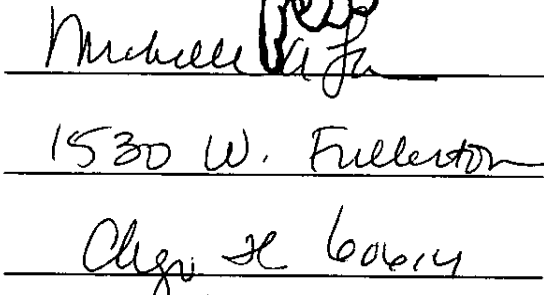 Michelle
1530 W. Fullerton
Chgo. IL 60614